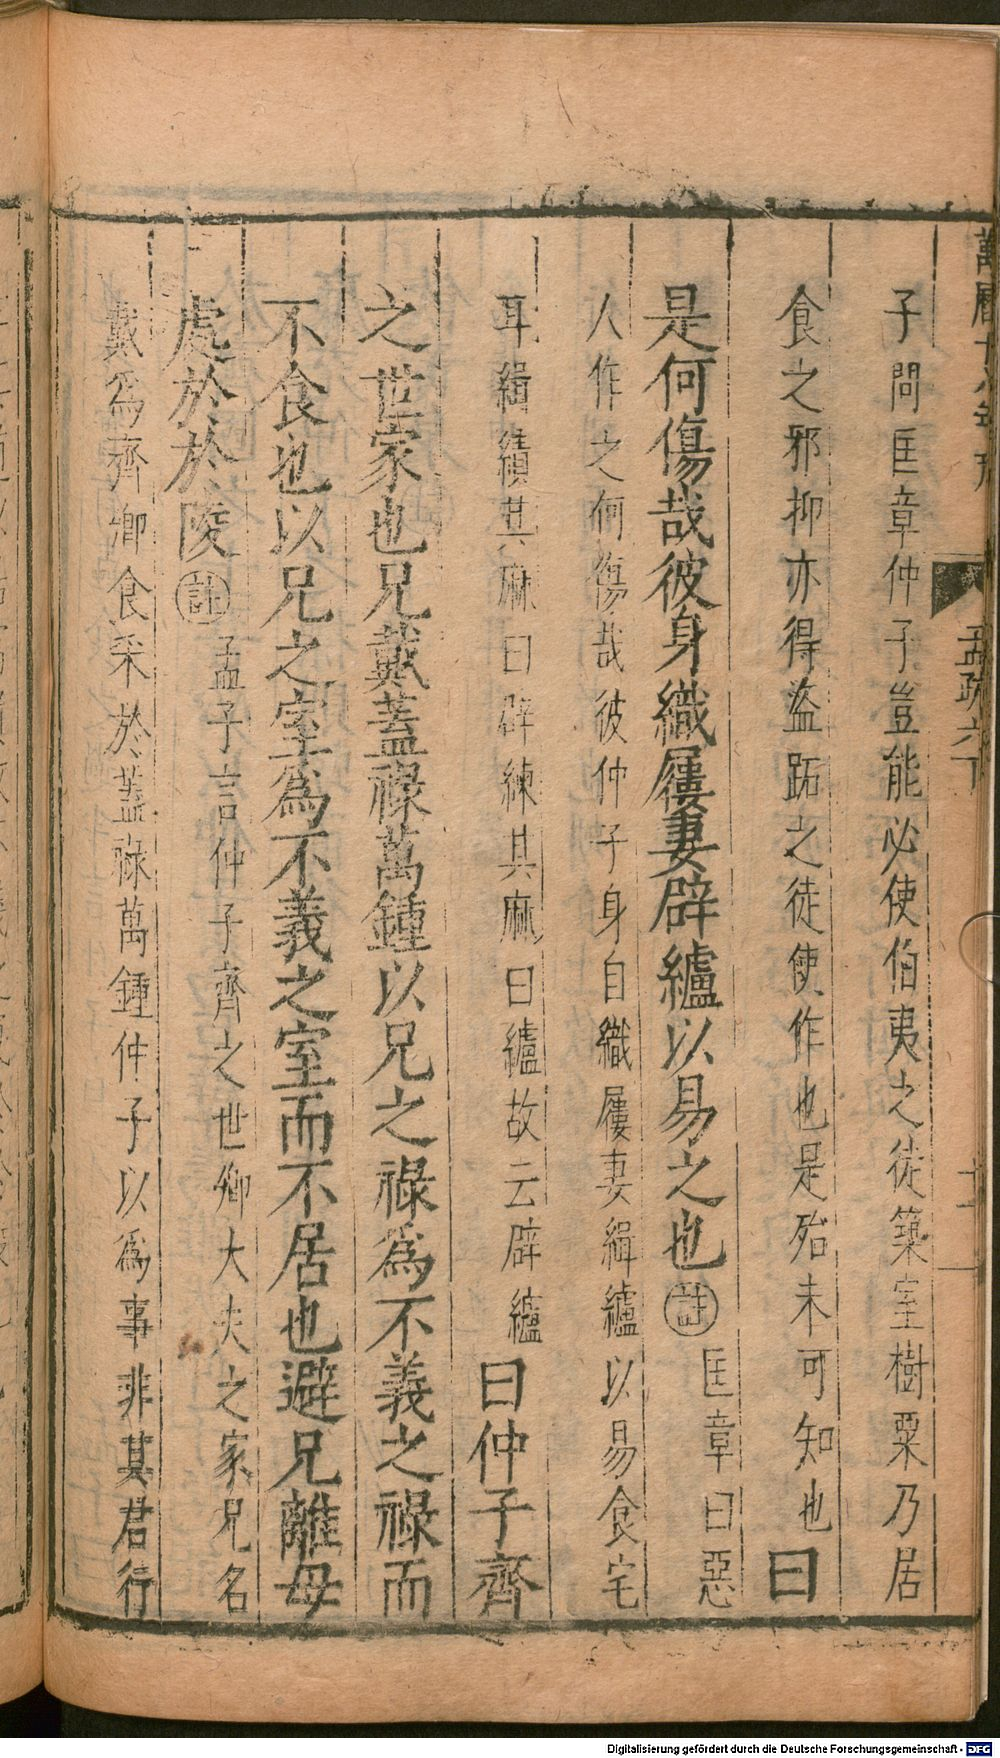 子問匡章仲子豈能必使伯夷之徒築室樹粟乃居
食之邪抑亦得盜跖之徒使作也是殆未可知也曰
是何傷哉彼身織屨妻辟纑以易之也註匡章曰惡
人作之何傷哉彼仲子身自織屨妻緝纑以易食宅
耳緝績其麻曰辟練其麻曰纑故云辟纑曰仲子齊
之世家也兄戴蓋祿萬鍾以兄之祿爲不義之祿而
不食也以兄之室爲不義之室而不居也避兄離母
處於於陵註孟子言仲子齊之世卿大夫之家兄名
戴爲齊卿食采於蓋祿萬鍾仲子以爲事非其君行
孟疏六下
Digitalisierung gefördert durch die Deutsche Forschungsgemeinschaft - DFG